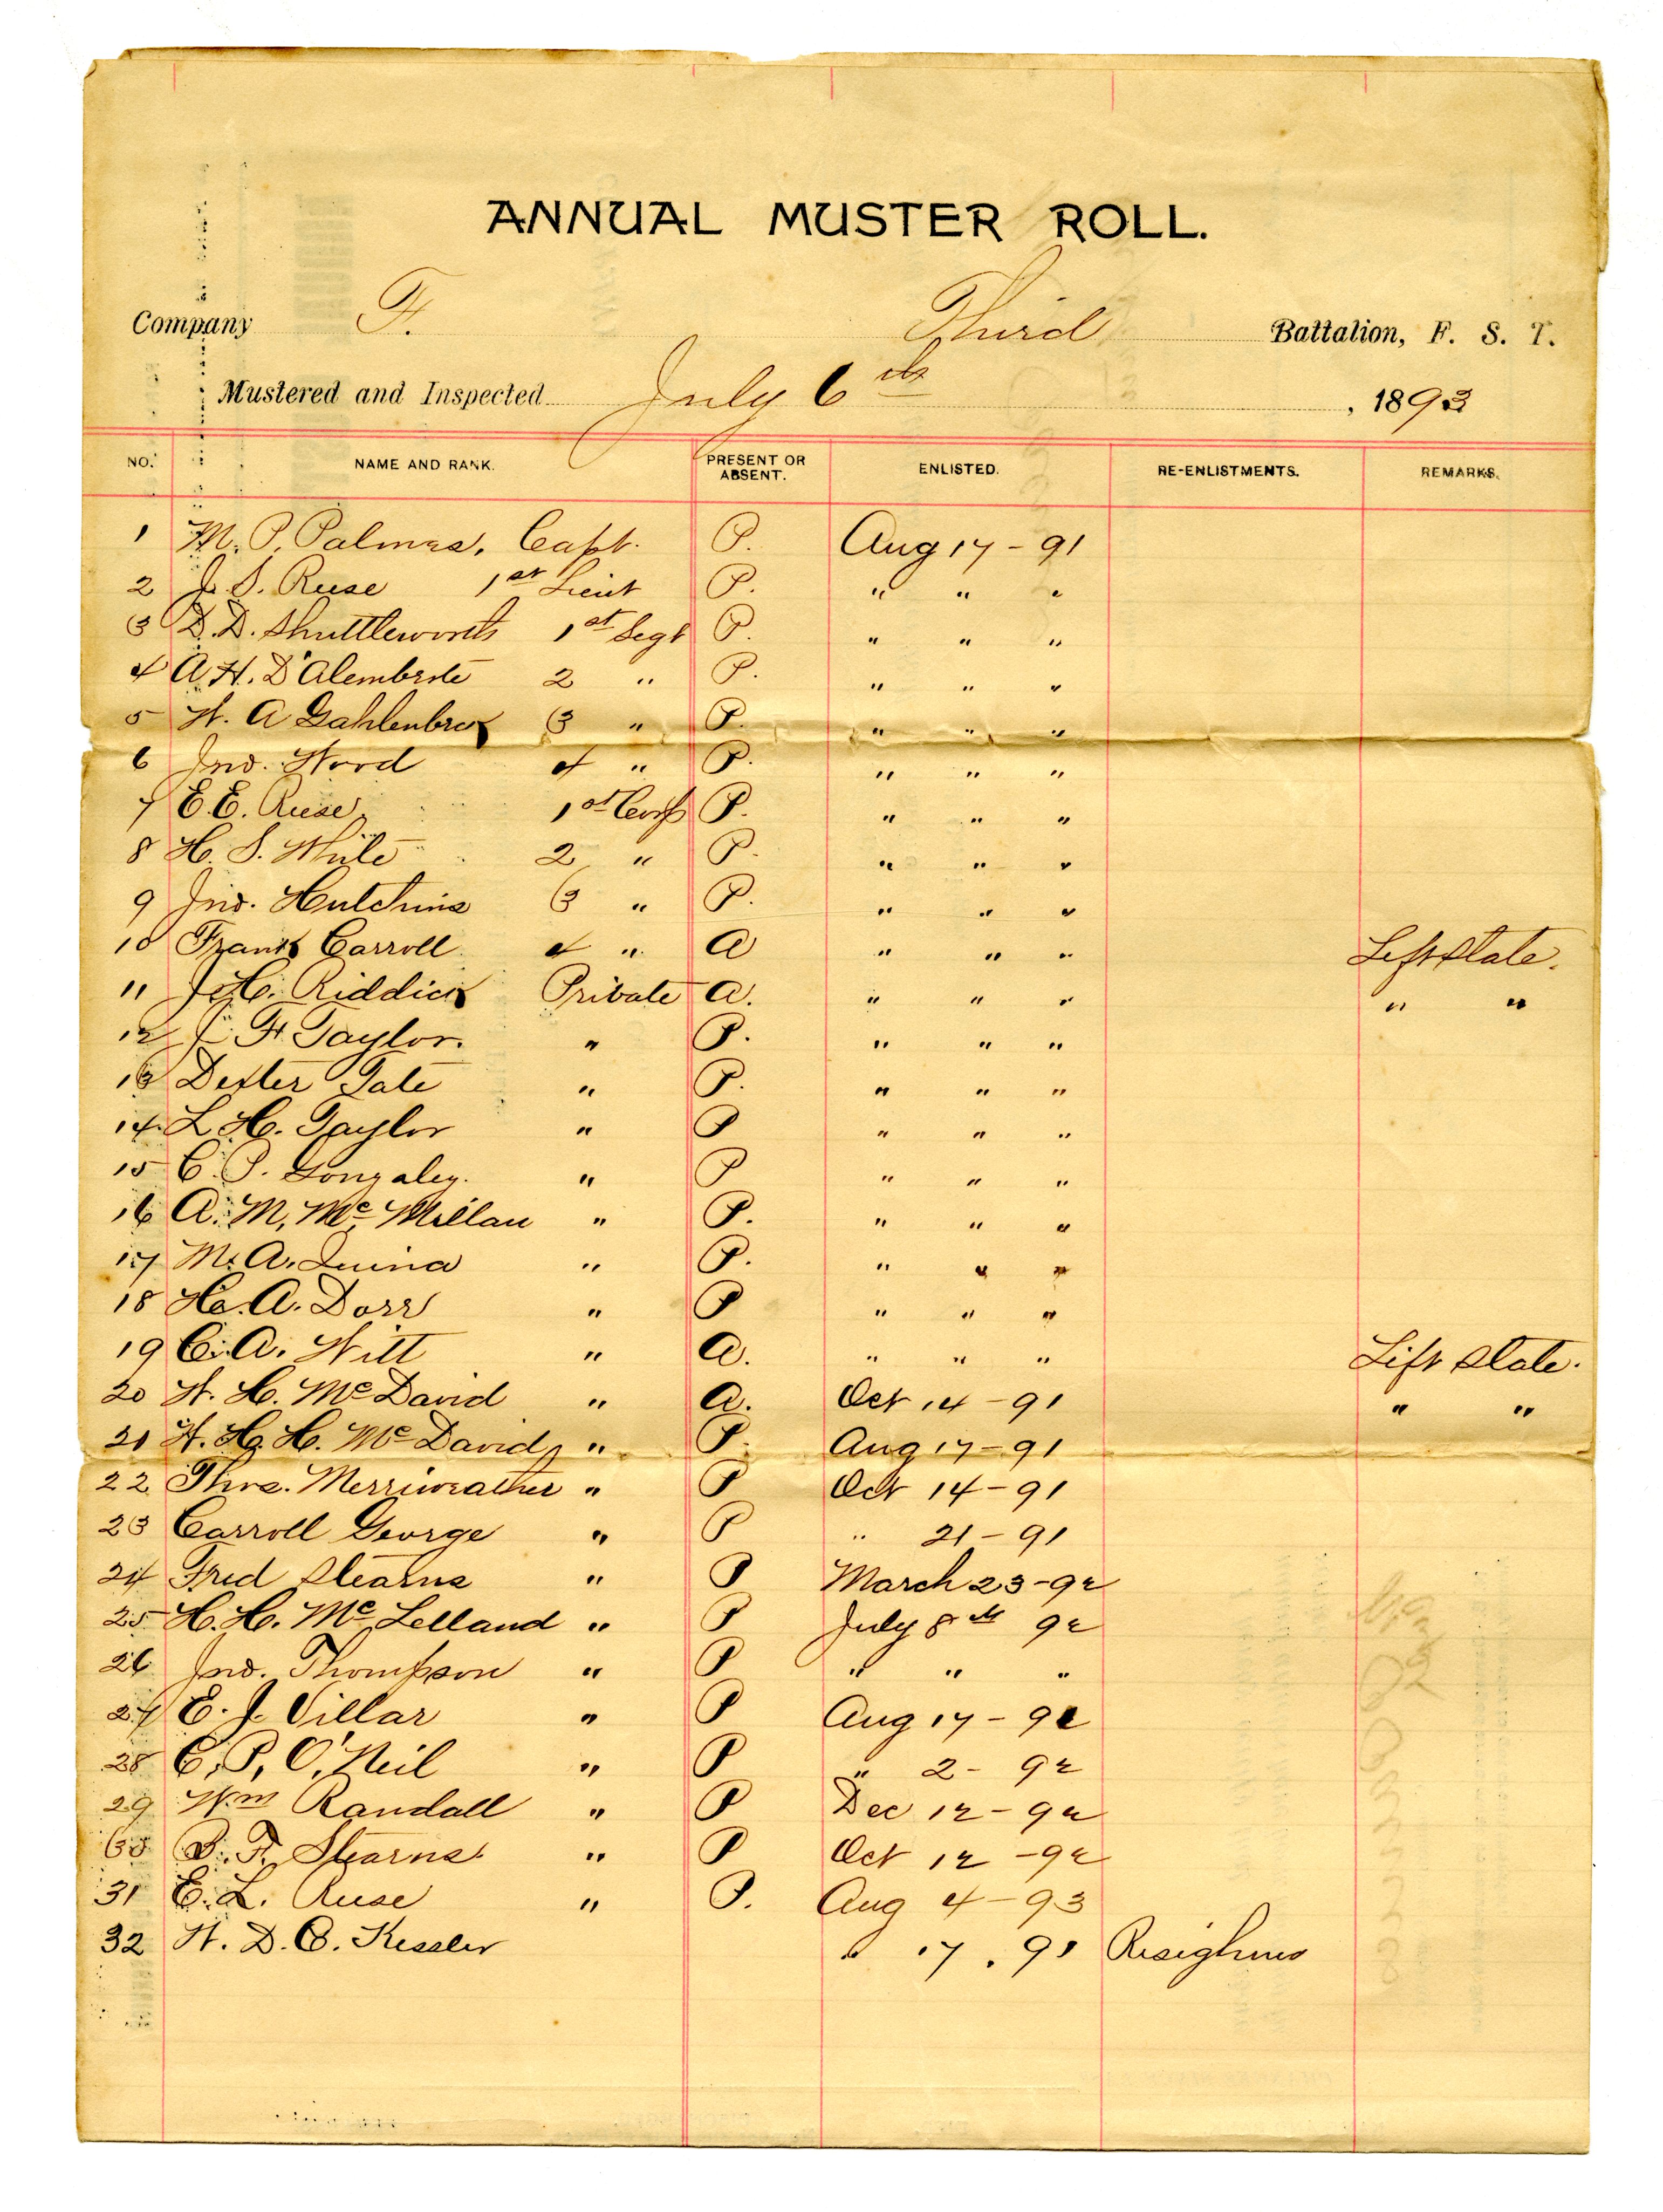 ANNUAL MUSTER ROLL.
Company F. Third Battalion, F. S. T.
Mustered and Inspected July 6th, 1893
NO. NAME AND RANK. PRESENT OR ABSENT. ENLISTED. RE-ENLISTMENTS. REMARKS.
1 M. P. Palmes, Capt. P. Aug 17 - 91
2 J. S. Reese 1st Lieut P. " " "
3 D. D. Shuttleworth 1st Segt P. " " "
4 A. H. D'Alemberte 2 " P. " " "
5 W. A Dahlenbrok 3 " P. " " "
6 Jno. Wood 4 " P. " " "
7 E. E. Reese 1st Corp P. " " "
8 H. S. White 2 " P. " " "
9 Jno. Hutchins 3 " P. " " "
10 Frank Carroll 4 " A " " " Left State.
11 J. H. Riddick Private A. " " " " "
12 J. W. Taylor. " P. " " "
13 Dexter Tate " P. " " "
14 L. H. Taylor " P " " "
15 C. P. Gonzalez. " P " " "
16 A. M. McMillan " P. " " "
17 M. A. Quina " P. " " "
18 H. A. Dorr " P " " "
19 C. A. Witt " A. " " " Left State.
20 W. H. McDavid " A. Oct 14 - 91 " "
21 W. H. H. McDavid " P. Aug 17 - 91
22 Thos. Merriweather " P Oct 14 - 91
23 Carroll George " P " 21 - 91
24 Fred Stearns " P March 23 - 92
25 H. H. McLelland " P July 8th 92
26 Jno. Thompson " P " " "
27 E. J. Villar " P Aug 17 -
28 C. P. O'Neil " P " 2 - 92
29 Wm Randall " P Dec 12 - 92
30 B. F. Stearns " P Oct 12 - 92
31 E. L. Reese " P. Aug 4 - 93
32 W. D. C. Kessler " 17 . 91